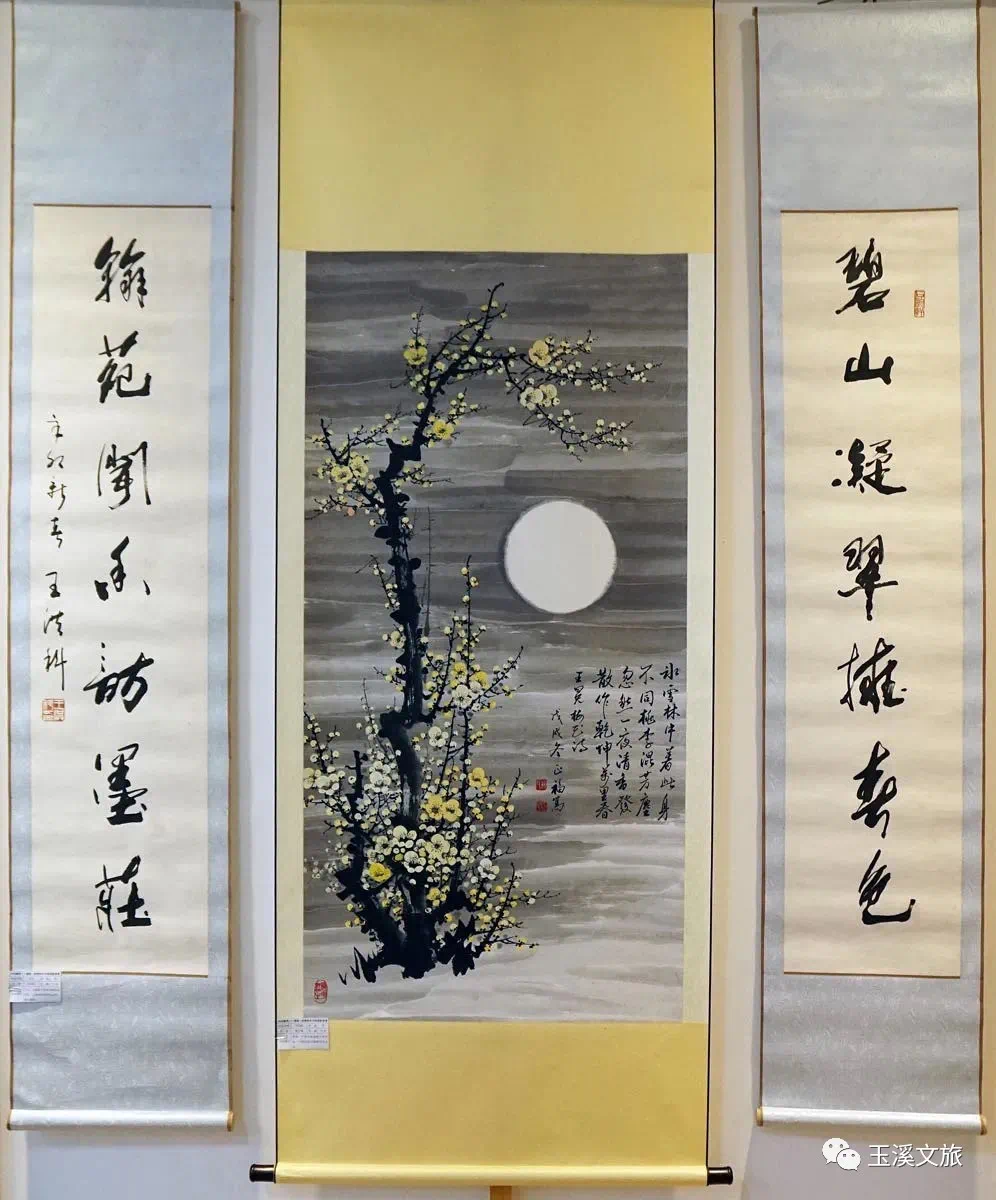 碧山凝翠擁春色
冰雪林中著此身
不同桃李混芳塵
忽然一夜清香發
散作乾坤萬里春
王冕梅花詩
戊戌冬正福寫
翰苑聞香訪墨莊
辛卯新春 王
玉溪文旅